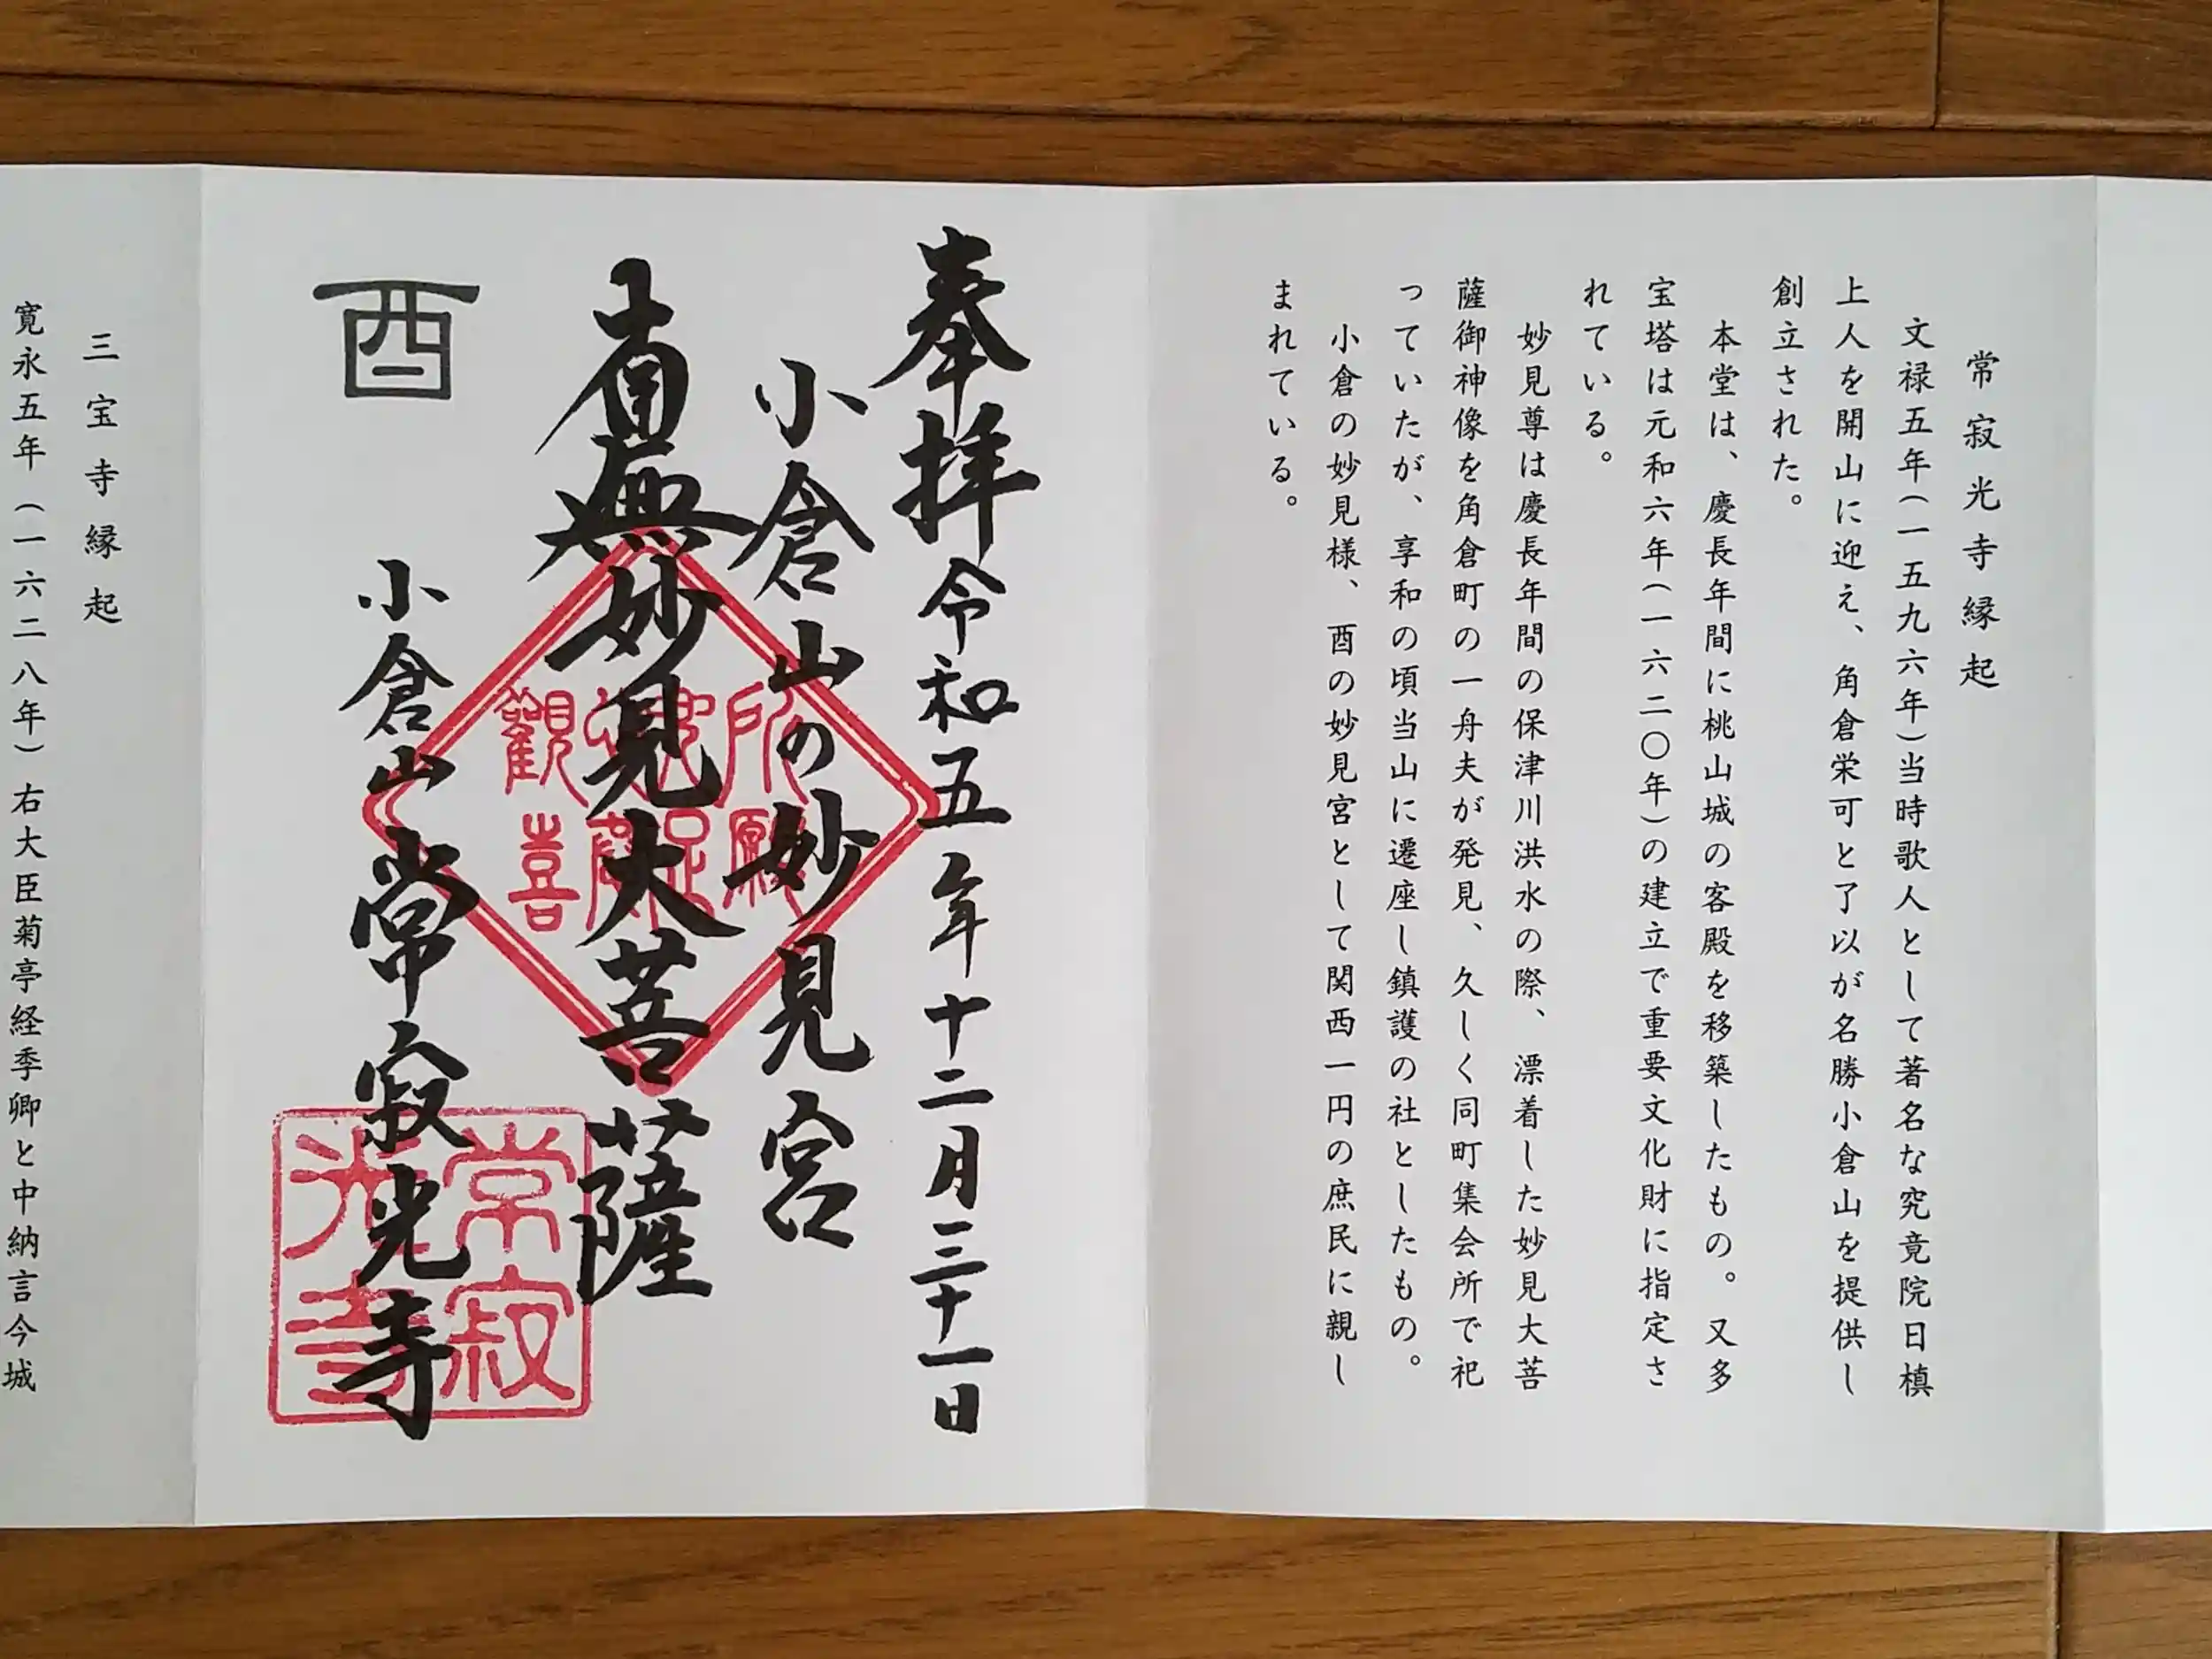 常寂光寺縁起
文禄五年(一五九六年)当時歌人として著名な究竟院日禛
上人を開山に迎え、角倉栄可と了以が名勝小倉山を提供し
創立された。
本堂は、慶長年間に桃山城の客殿を移築したもの。又多
宝塔は元和六年(一六二〇年)の建立で重要文化財に指定さ
れている。
妙見尊は慶長年間の保津川洪水の際、漂着した妙見大菩
薩御神像を角倉町の一舟夫が発見、久しく同町集会所で祀
っていたが、享和の頃当山に遷座し鎮護の社としたもの。
小倉の妙見様、酉の妙見宮として関西一円の庶民に親し
まれている。
奉拝 令和五年十二月三十一日
小倉山の妙見宮
南無妙見大菩薩
酉
小倉山 常寂光寺
所願
観喜
常寂
光寺
三宝寺縁起
寛永五年(一六二八年)右大臣菊亭経季卿と中納言今城